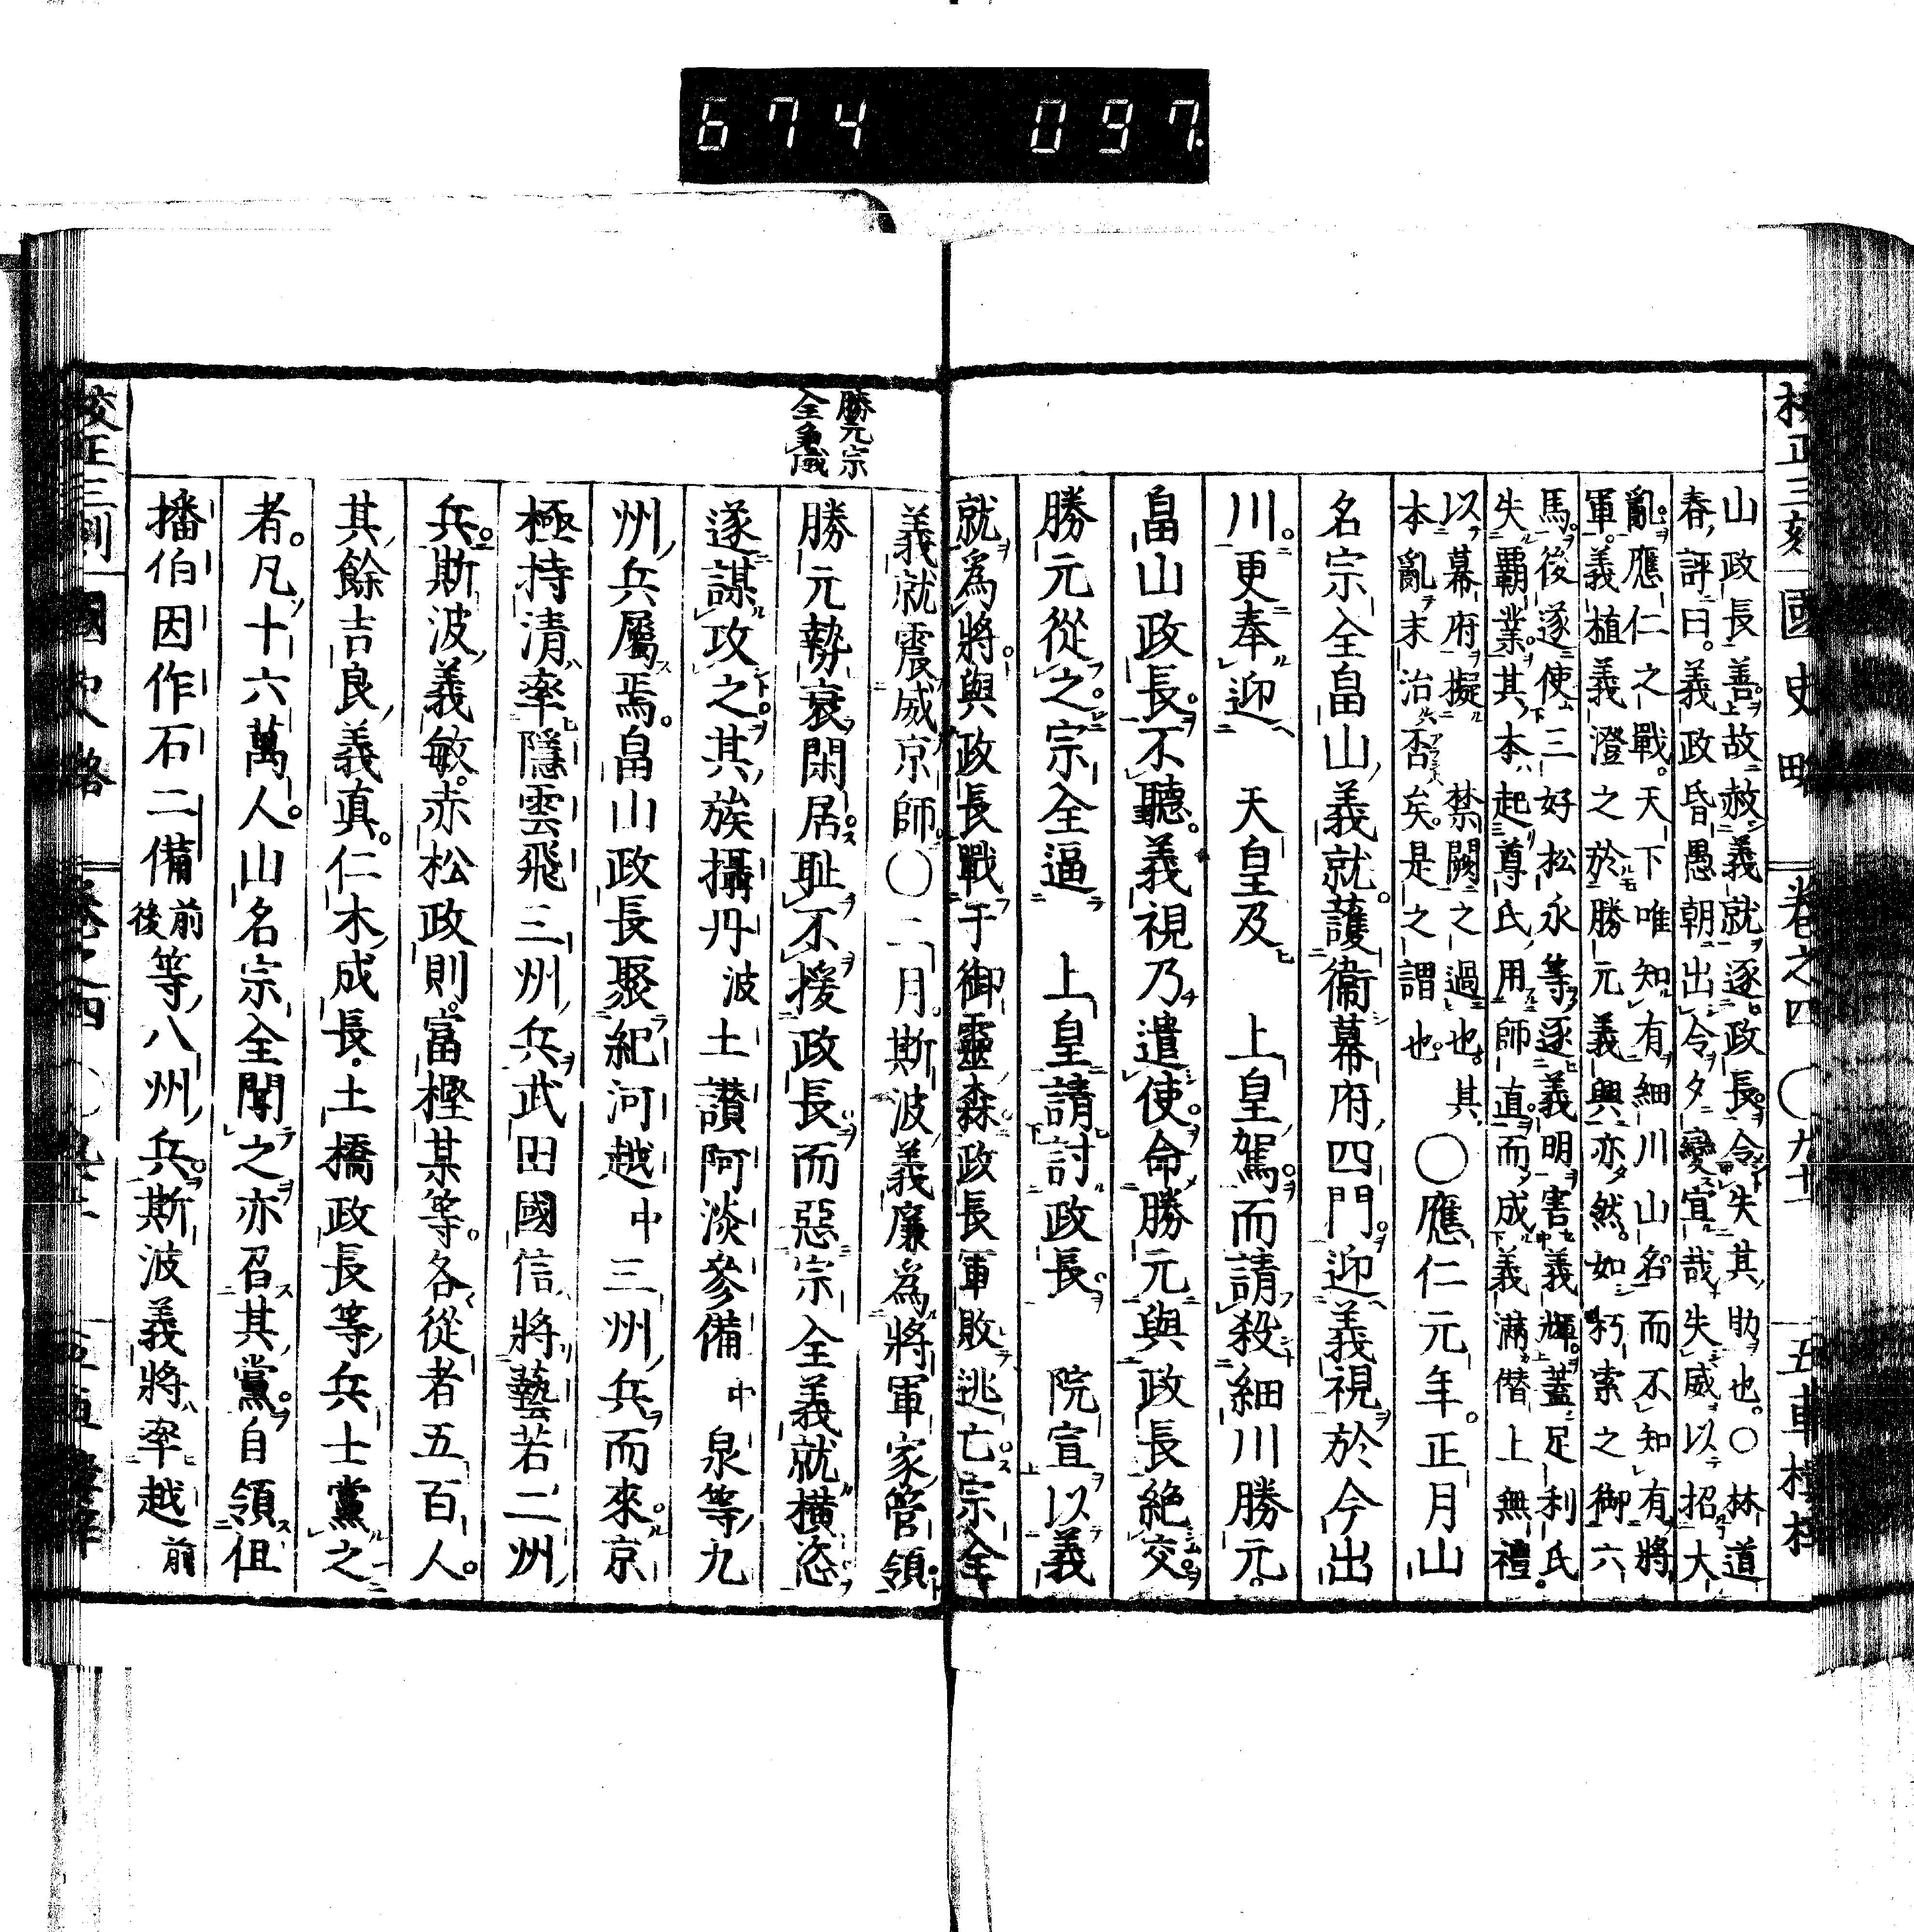 674 097
國史略 卷之四 〇九十
山政長善故赦義就逐政長令失其助也〇林道
春評曰義政昏愚朝出令夕變宜哉失威以招大
亂應仁之戰天下唯知有細川山名而不知有將
軍義植義澄之於勝元義興亦然如朽索之御六
馬後遂使三好松永等逐義明害義輝蓋足利氏
失覇業其本起尊氏用師直而成義滿僭上無禮
以幕府擬 禁闕之過也其
本亂末治否矣是之謂也
〇應仁元年正月山
名宗全畠山義就護衞幕府四門迎義視於今出
川更奉迎 天皇及 上皇駕而請殺細川勝元
畠山政長不聽義視乃遣使命勝元與政長絶交
勝元從之宗全逼 上皇請討政長 院宣以義
就爲將與政長戰于御靈森政長軍敗逃亡宗全
勝元宗
全爭威
義就震威京師〇二月斯波義廉爲將軍家管領
勝元勢衰閑居耻不援政長而惡宗全義就横恣
遂謀攻之其族攝丹波土讃阿淡參備中泉等九
州兵屬焉畠山政長聚紀河越中三州兵而來京
極持清率隱雲飛三州兵武田國信將藝若二州
兵斯波義敏赤松政則富樫某等各從者五百人
其餘吉良義真仁木成長土橋政長等兵士黨之
者凡十六萬人山名宗全聞之亦召其黨自領但
播伯因作石二備前後等八州兵斯波義將率越前
國史略